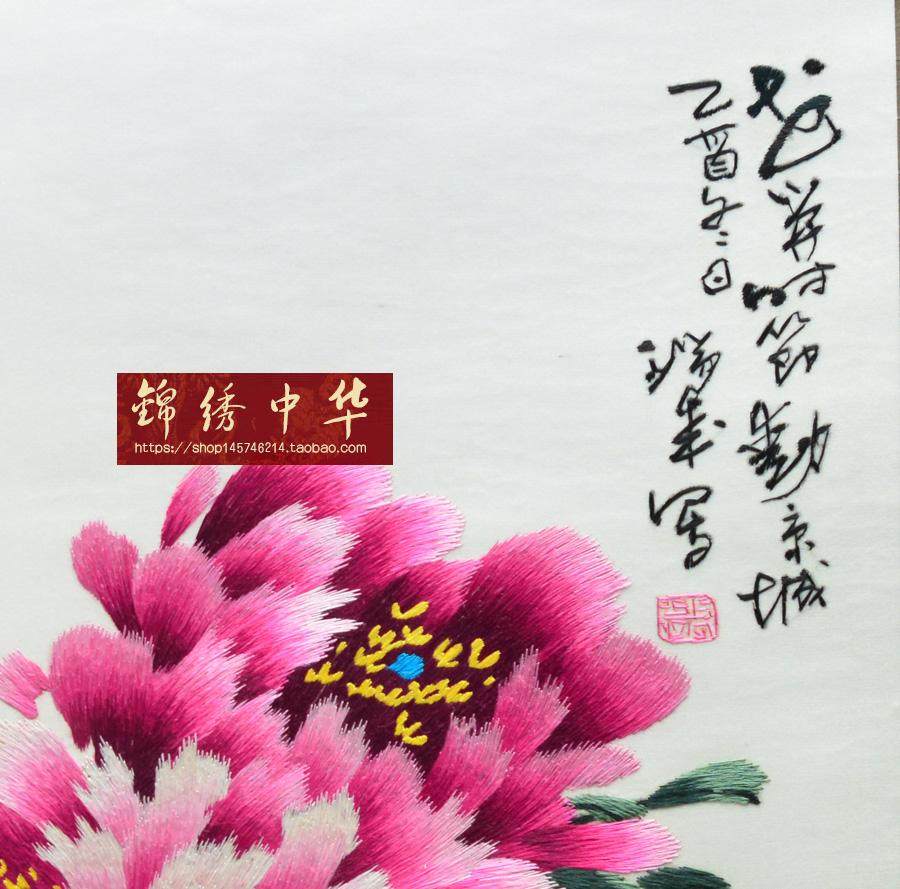 花开时节動京城
乙酉冬日
瑞華写
錦绣中华
https://shop145746214.taobao.com